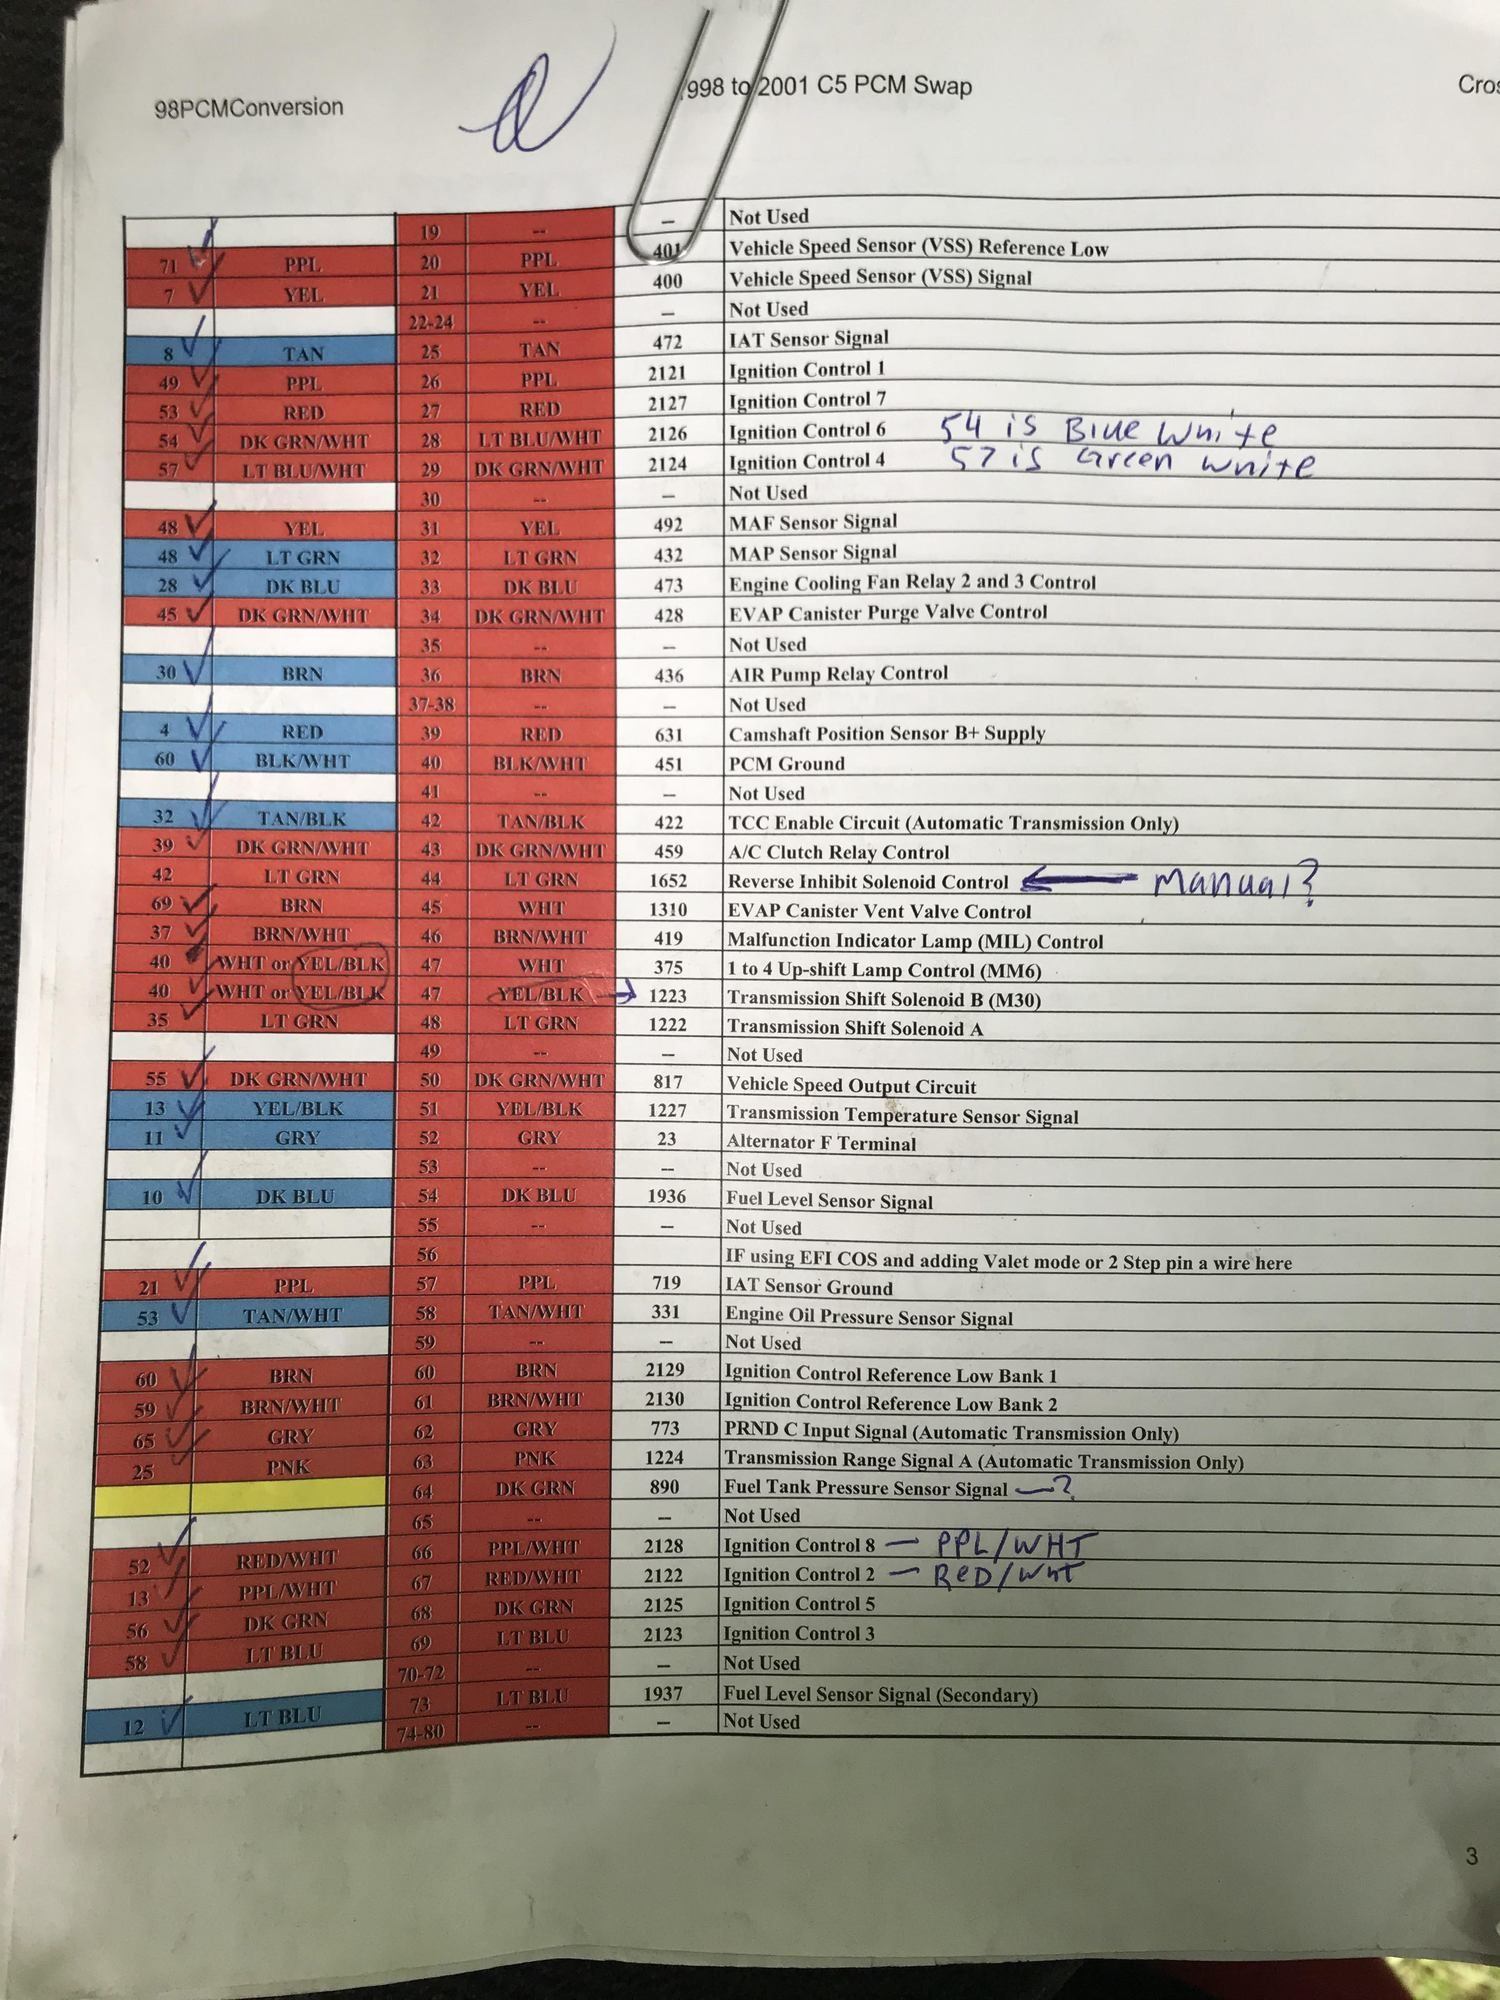 98PCMConversion
1998 to 2001 C5 PCM Swap
Cros
19 -- – Not Used
71 PPL 20 PPL 401 Vehicle Speed Sensor (VSS) Reference Low
7 YEL 21 YEL 400 Vehicle Speed Sensor (VSS) Signal
22-24 -- – Not Used
8 TAN 25 TAN 472 IAT Sensor Signal
49 PPL 26 PPL 2121 Ignition Control 1
53 RED 27 RED 2127 Ignition Control 7
54 DK GRN/WHT 28 LT BLU/WHT 2126 Ignition Control 6 54 is Blue White
57 LT BLU/WHT 29 DK GRN/WHT 2124 Ignition Control 4 57 is Green White
30 -- – Not Used
48 YEL 31 YEL 492 MAF Sensor Signal
48 LT GRN 32 LT GRN 432 MAP Sensor Signal
28 DK BLU 33 DK BLU 473 Engine Cooling Fan Relay 2 and 3 Control
45 DK GRN/WHT 34 DK GRN/WHT 428 EVAP Canister Purge Valve Control
35 -- – Not Used
30 BRN 36 BRN 436 AIR Pump Relay Control
37-38 -- – Not Used
4 RED 39 RED 631 Camshaft Position Sensor B+ Supply
60 BLK/WHT 40 BLK/WHT 451 PCM Ground
41 -- – Not Used
32 TAN/BLK 42 TAN/BLK 422 TCC Enable Circuit (Automatic Transmission Only)
39 DK GRN/WHT 43 DK GRN/WHT 459 A/C Clutch Relay Control
42 LT GRN 44 LT GRN 1652 Reverse Inhibit Solenoid Control manual?
69 BRN 45 WHT 1310 EVAP Canister Vent Valve Control
37 BRN/WHT 46 BRN/WHT 419 Malfunction Indicator Lamp (MIL) Control
40 WHT or YEL/BLK 47 WHT 375 1 to 4 Up-shift Lamp Control (MM6)
40 WHT or YEL/BLK 47 YEL/BLK 1223 Transmission Shift Solenoid B (M30)
35 LT GRN 48 LT GRN 1222 Transmission Shift Solenoid A
49 -- – Not Used
55 DK GRN/WHT 50 DK GRN/WHT 817 Vehicle Speed Output Circuit
13 YEL/BLK 51 YEL/BLK 1227 Transmission Temperature Sensor Signal
11 GRY 52 GRY 23 Alternator F Terminal
53 -- – Not Used
10 DK BLU 54 DK BLU 1936 Fuel Level Sensor Signal
55 -- – Not Used
56 IF using EFI COS and adding Valet mode or 2 Step pin a wire here
21 PPL 57 PPL 719 IAT Sensor Ground
53 TAN/WHT 58 TAN/WHT 331 Engine Oil Pressure Sensor Signal
59 -- – Not Used
60 BRN 60 BRN 2129 Ignition Control Reference Low Bank 1
59 BRN/WHT 61 BRN/WHT 2130 Ignition Control Reference Low Bank 2
65 GRY 62 GRY 773 PRND C Input Signal (Automatic Transmission Only)
25 PNK 63 PNK 1224 Transmission Range Signal A (Automatic Transmission Only)
64 DK GRN 890 Fuel Tank Pressure Sensor Signal —?
65 -- – Not Used
52 RED/WHT 66 PPL/WHT 2128 Ignition Control 8 — PPL/WHT
13 PPL/WHT 67 RED/WHT 2122 Ignition Control 2 — RED/WHT
56 DK GRN 68 DK GRN 2125 Ignition Control 5
58 LT BLU 69 LT BLU 2123 Ignition Control 3
70-72 -- – Not Used
12 LT BLU 73 LT BLU 1937 Fuel Level Sensor Signal (Secondary)
74-80 -- – Not Used
3